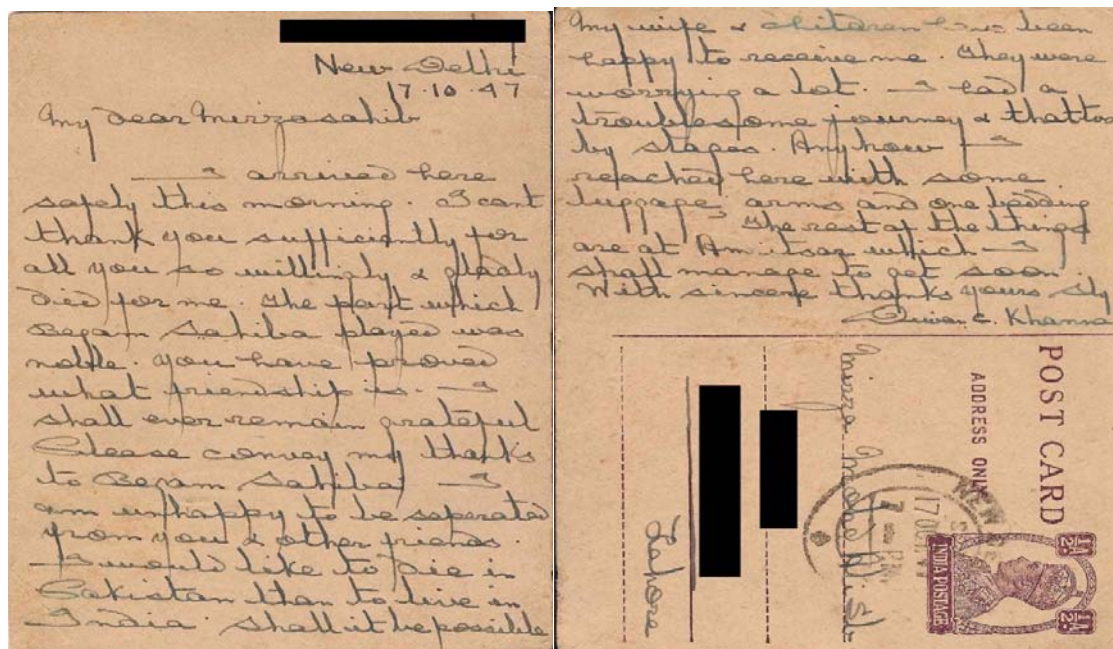 New Delhi
17.10.47
My dear Mirza sahib
I arrived here
safely this morning. I cant
thank you sufficiently for
all you so willingly & gladly
died for me. The part which
Begam Sahiba played was
noble. You have proved
what friendship is. I
shall ever remain grateful
Please convey my thanks
to Begam Sahiba. I
am unhappy to be seperated
from you & other friends.
I would like to die in
Pakistan than to live in
India. Shall it be possible
My wife & children have been
happy to receive me. They were
worrying a lot. I had a
troublesome journey & that too
by stages. Any how I
reached here with some
luggage, arms and one bedding
The rest of the things
are at Amritsar which I
shall manage to get soon.
With sincere thanks yours Sly
Diwan C. Khanna
POST CARD
ADDRESS ONLY
NEW
17 OCT
½A
½A
INDIA POSTAGE
Mirza
Lahore